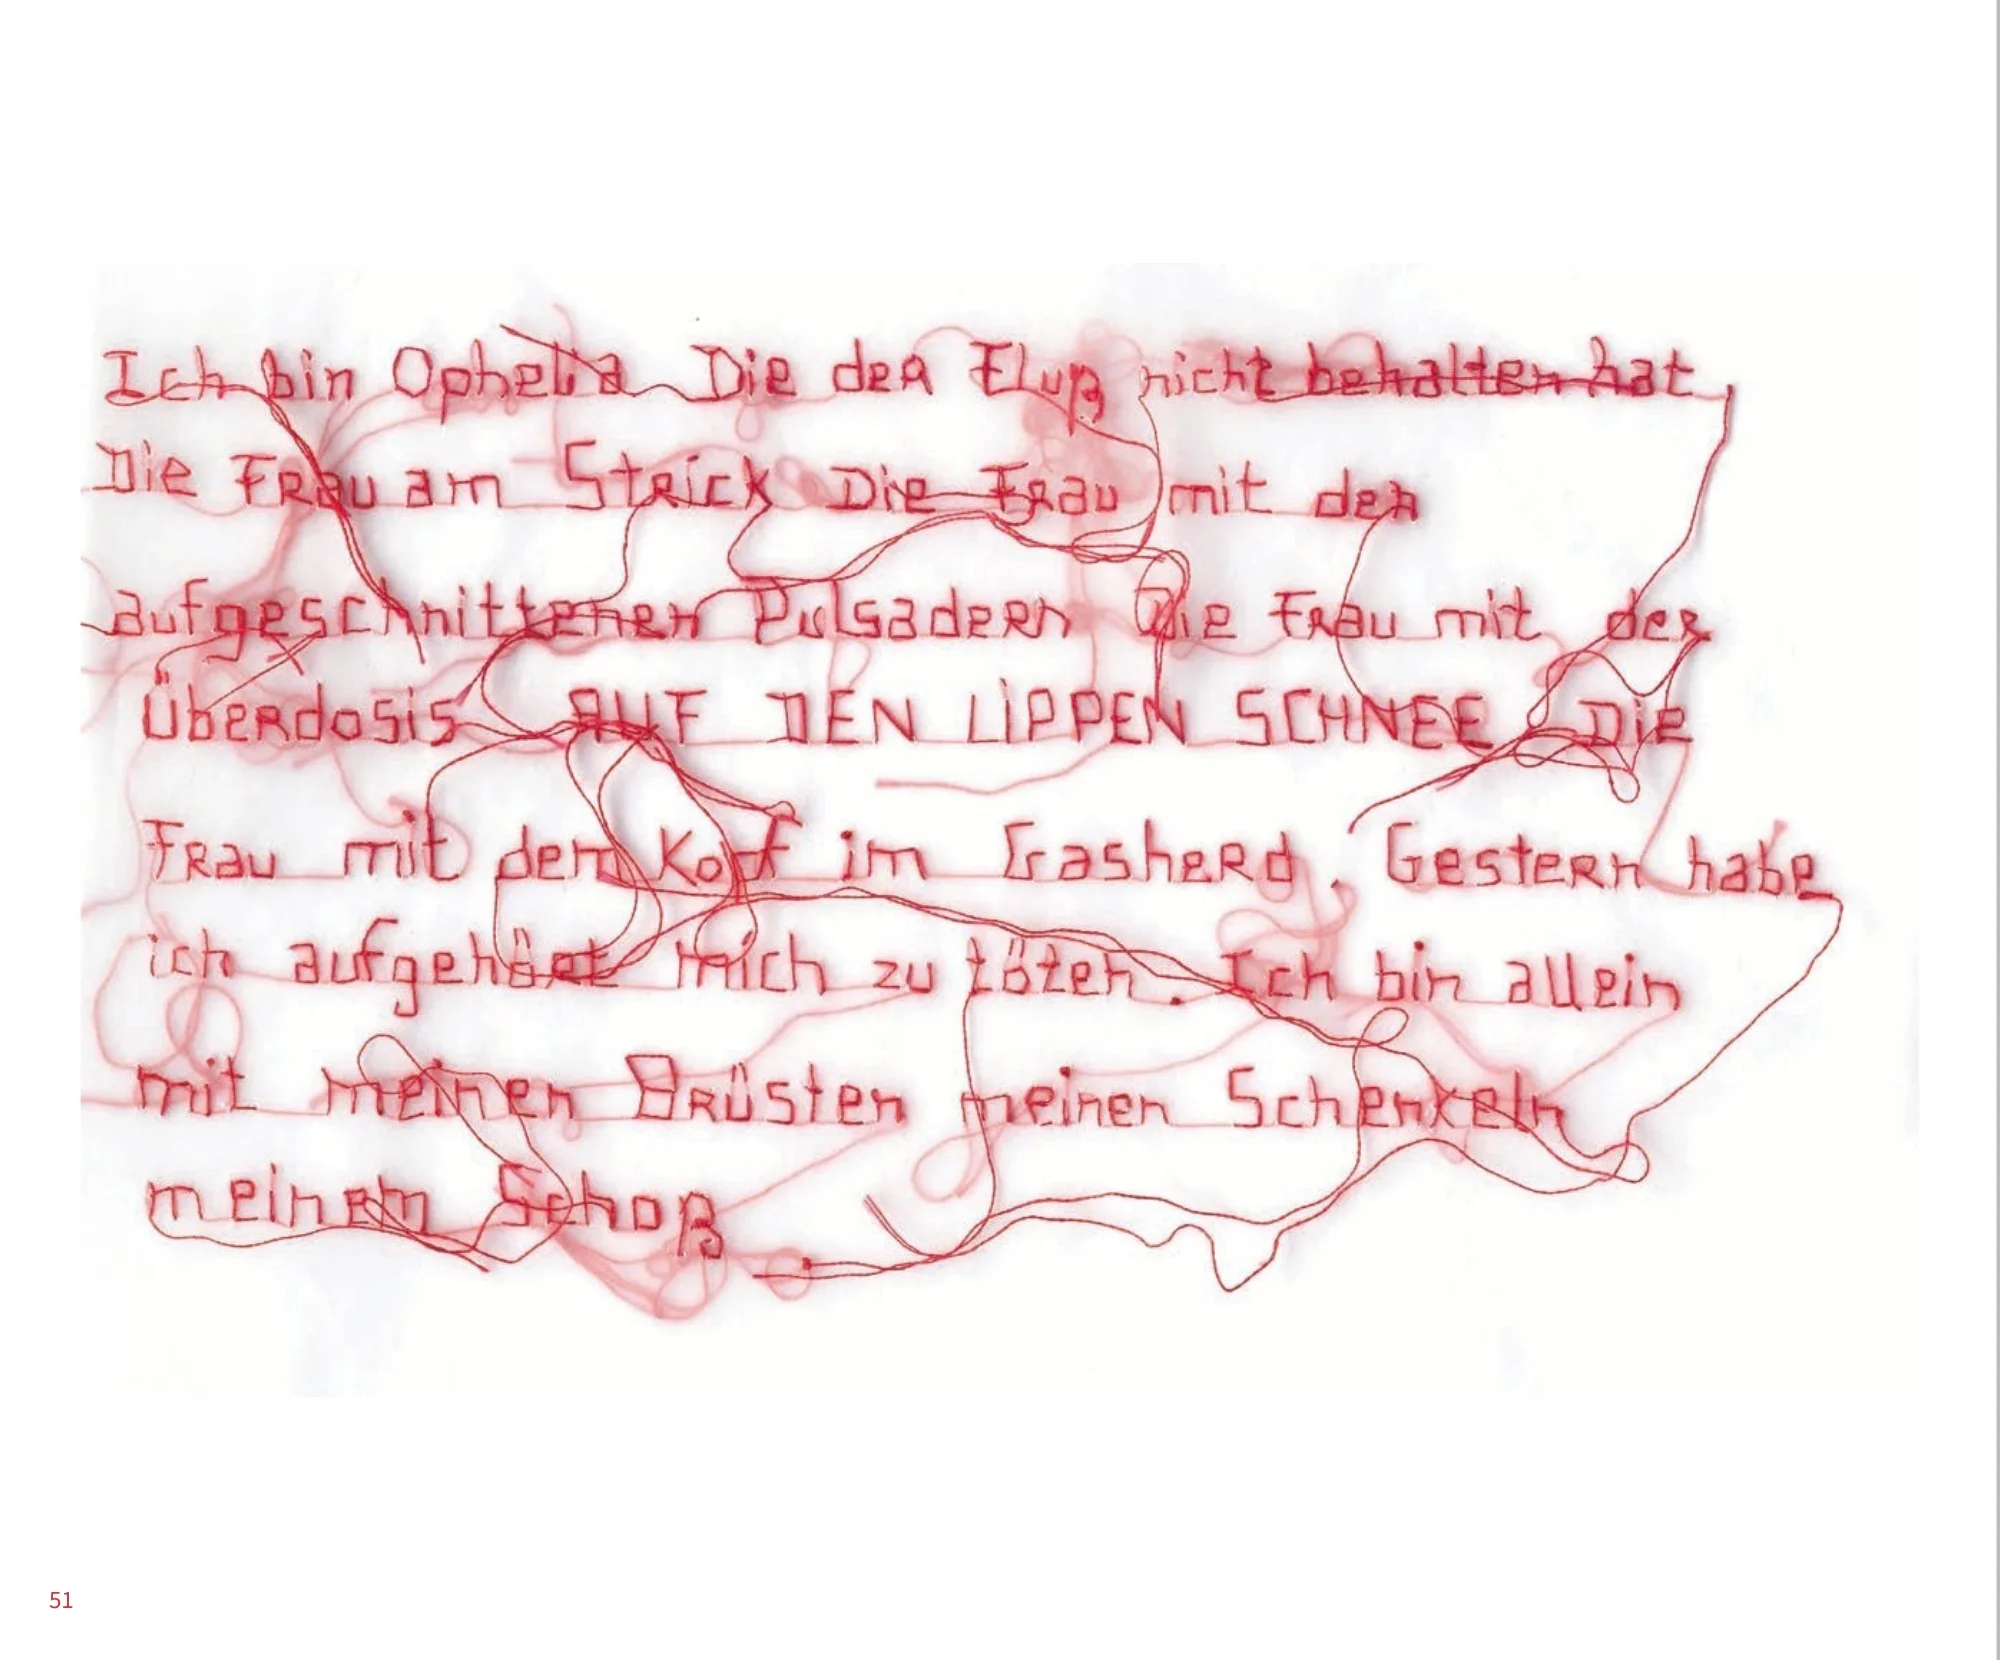 Ich bin Ophelia Die der Fluß nicht behalten hat
Die Frau am Strick Die Frau mit den
aufgeschnittenen Pulsadern Die Frau mit der
Überdosis AUF DEN LIPPEN SCHNEE Die
Frau mit dem Kopf im Gasherd. Gestern habe
ich aufgehört mich zu töten. Ich bin allein
mit meinen Brüsten meinen Schenkeln
meinem Schoß
51